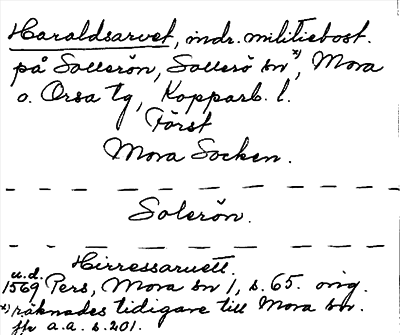 Haraldsarvet, indr. militiebost.
på Sollerön, Sollerö sn x), Mora
o. Orsa tg, Kopparb. l.
Först
Mora Socken.
Solerön.
Hirressaruett.
u.d.
1569 Pers, Mora sn 1, s. 65. orig.
x) räknades tidigare till Mora sn.
jfr a.a. s. 201.